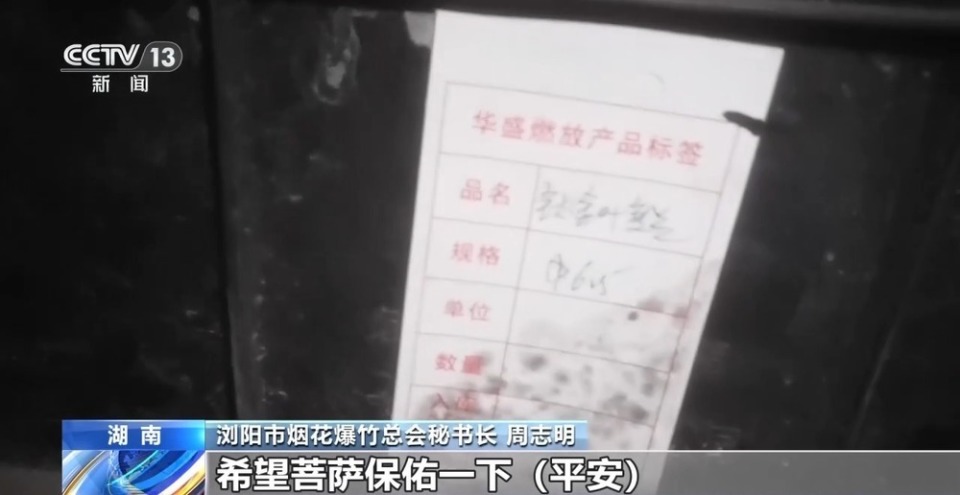 CCTV 13
新闻
华盛燃放产品标签
品名
规格
单位
数量
入库
湖南
浏阳市烟花爆竹总会秘书长 周志明
希望菩萨保佑一下（平安）